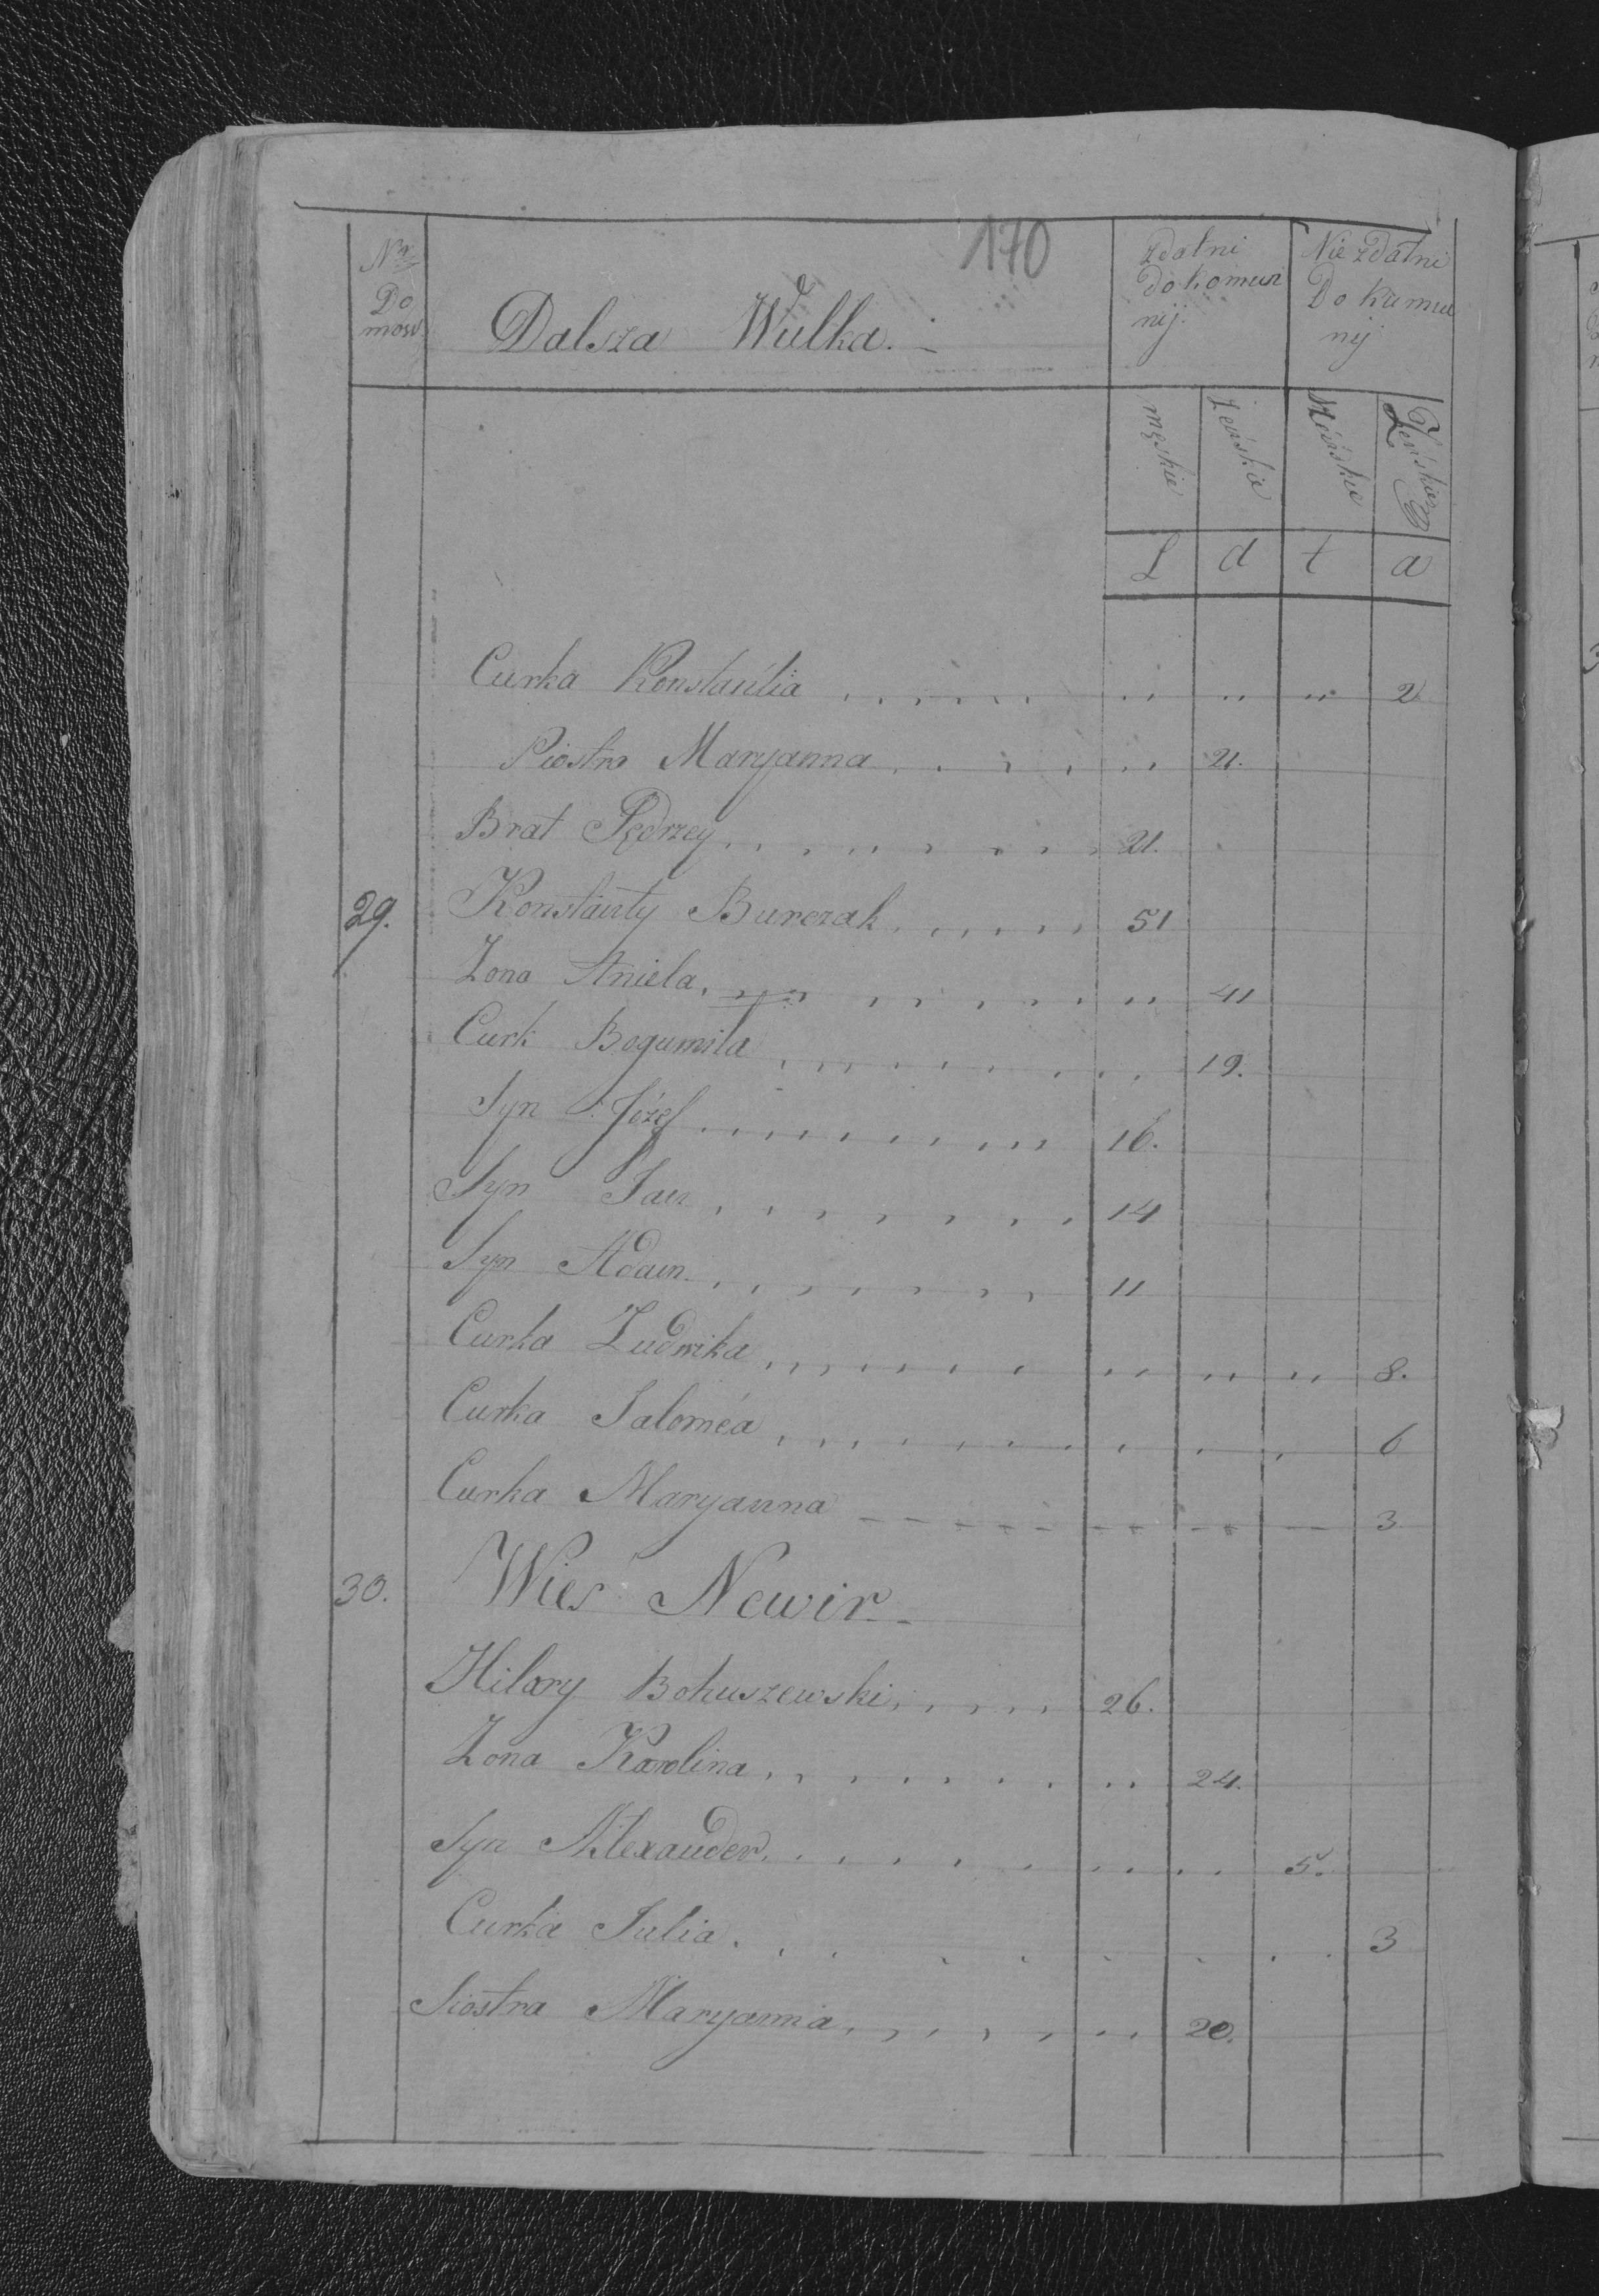 170
Nr Domow
Dalsza Wulka.
Zdatni do komunij
Nie zdatni Do Kumunij
męskie
żeńskie
Męśskie
Żeńskie
L a t a
Curka Konstańtia 2
Siostra Maryanna 21.
Brat Jędrzey 21.
29. Konstanty Burczak 51
Zona Aniela 41
Curk Bogumiła 19.
Syn Józef 16.
Syn Jan 14
Syn Adam 11
Curka Ludwika 8.
Curka Saloméa 6
Curka Maryanna 3
30. Wieś Newir
Hilary Bohuszewski 26.
Zona Karolina 24.
Syn Alexander 5.
Curka Julia 3
Siostra Maryanna 20.